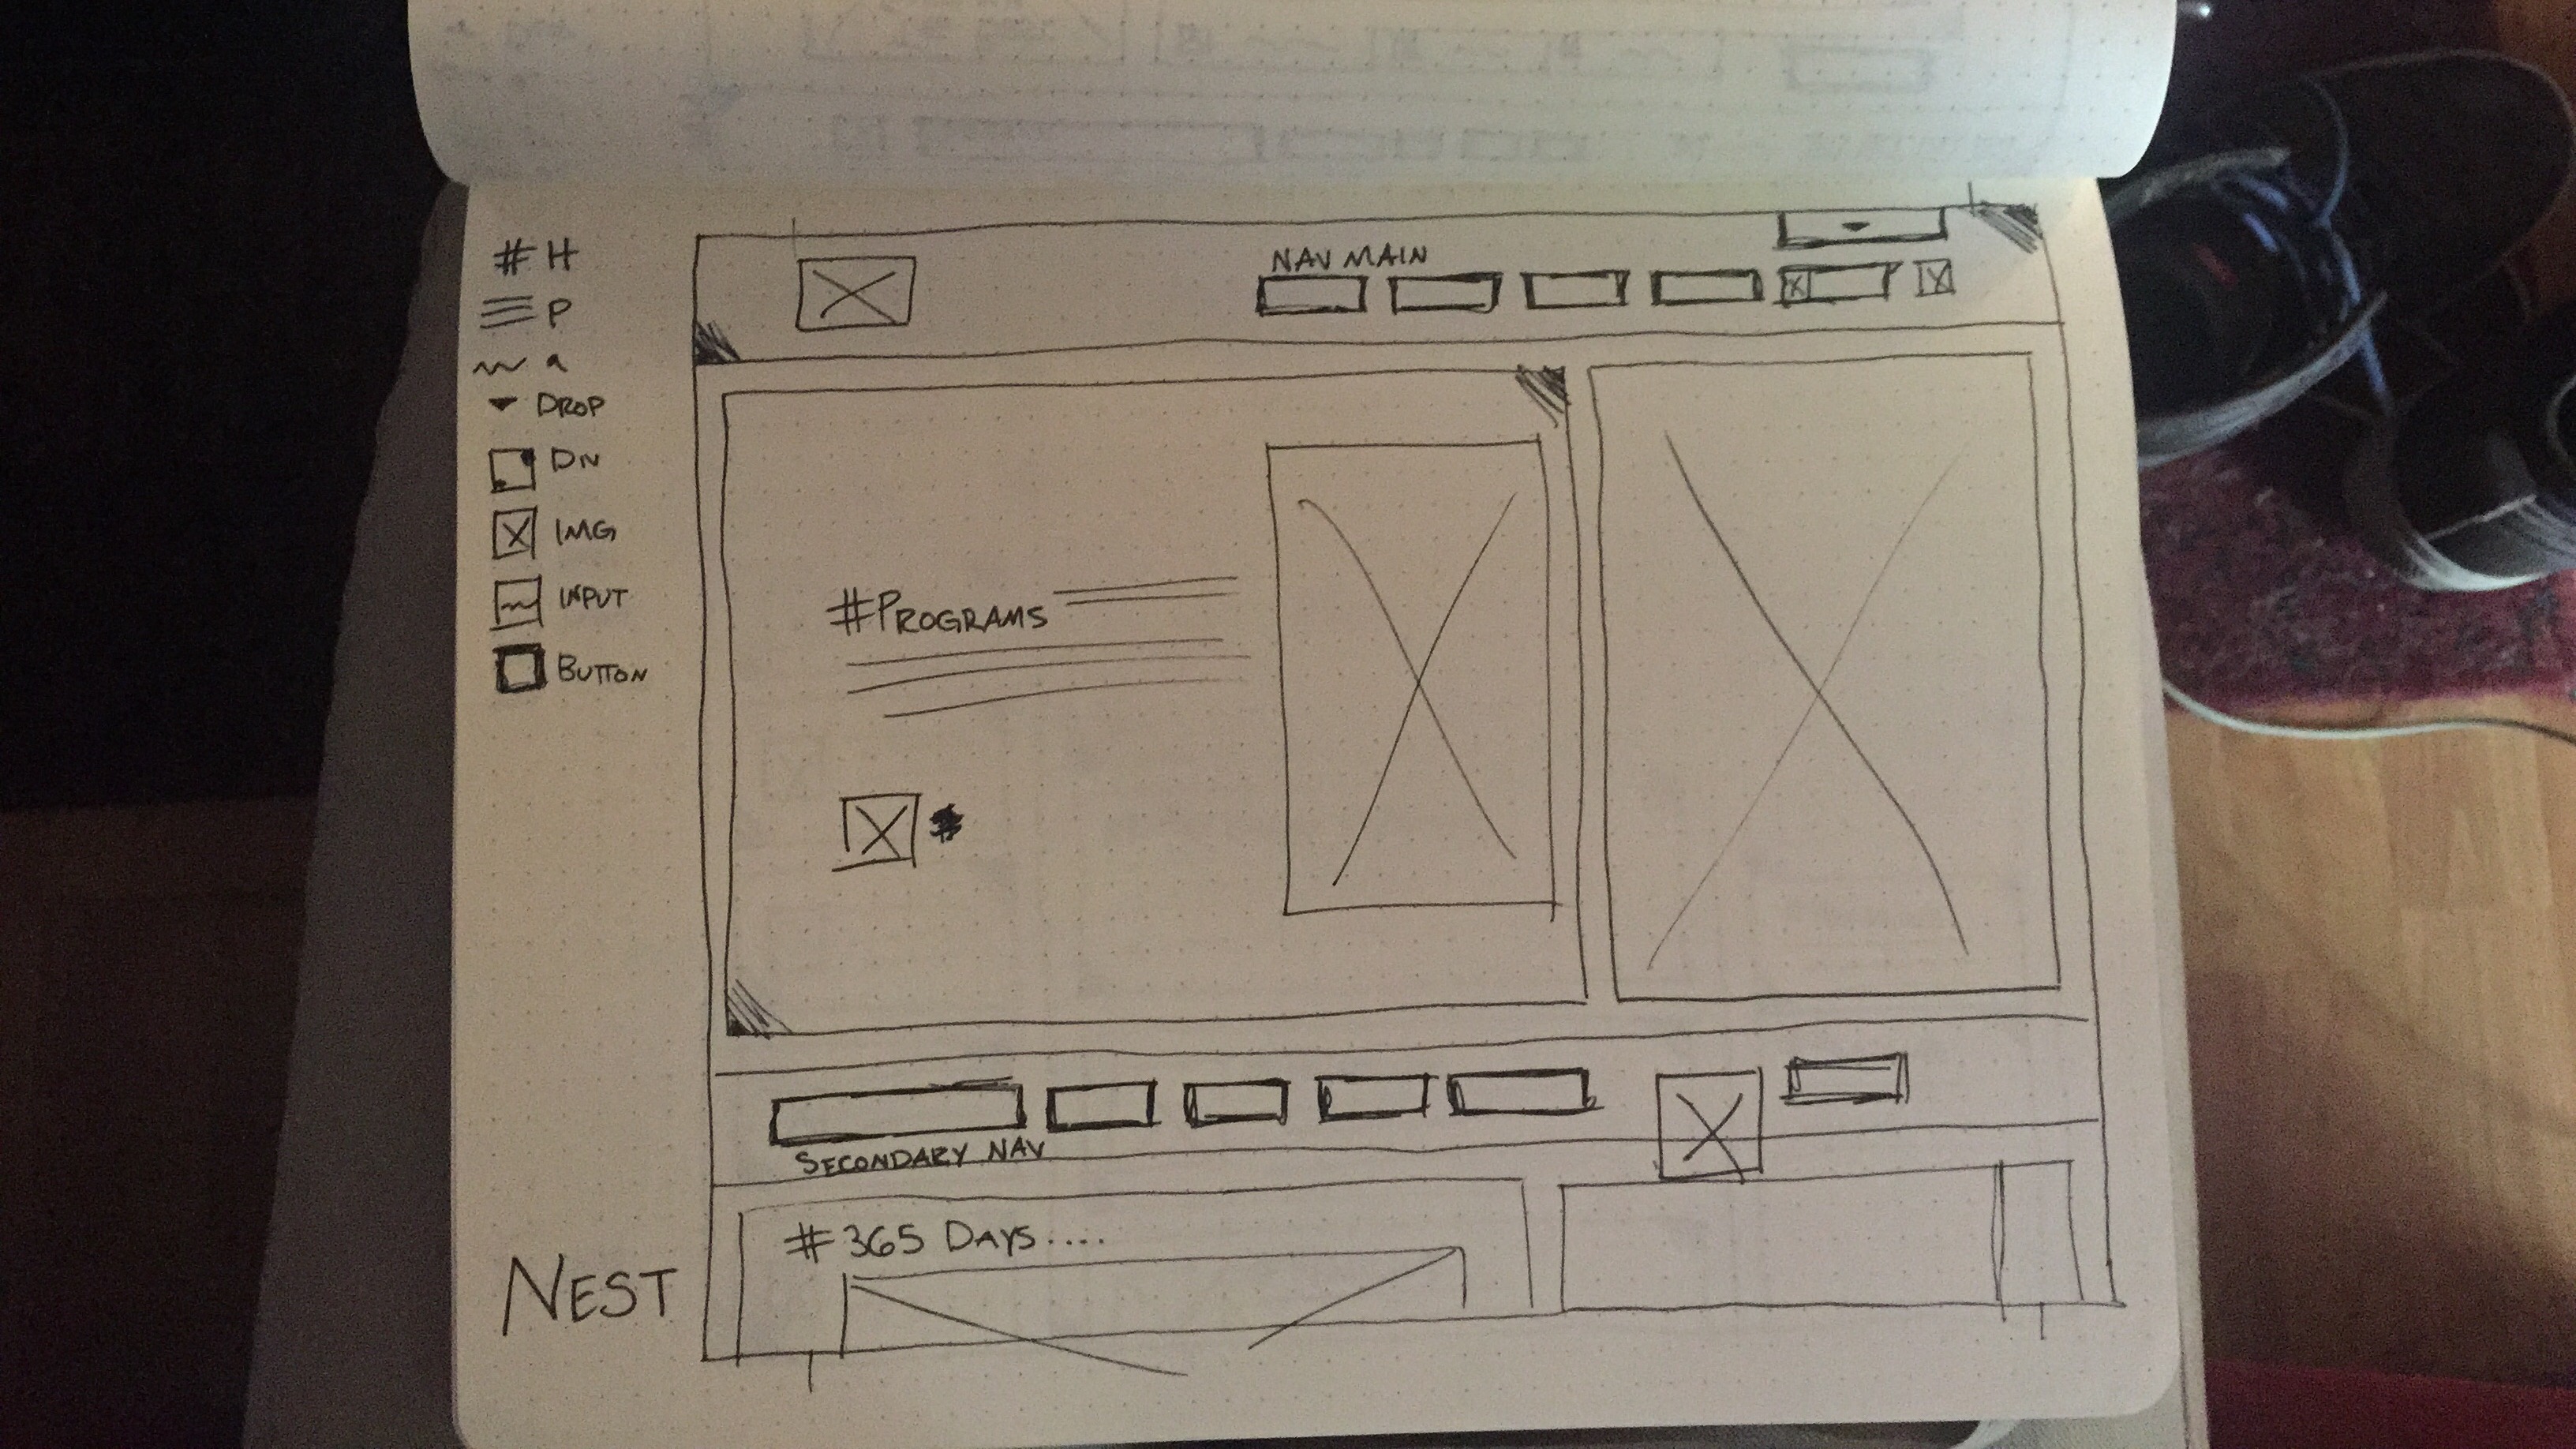 # H
P
a
DROP
DN
IMG
INPUT
BUTTON
NAV MAIN
#PROGRAMS
SECONDARY NAV
# 365 DAYS....
NEST